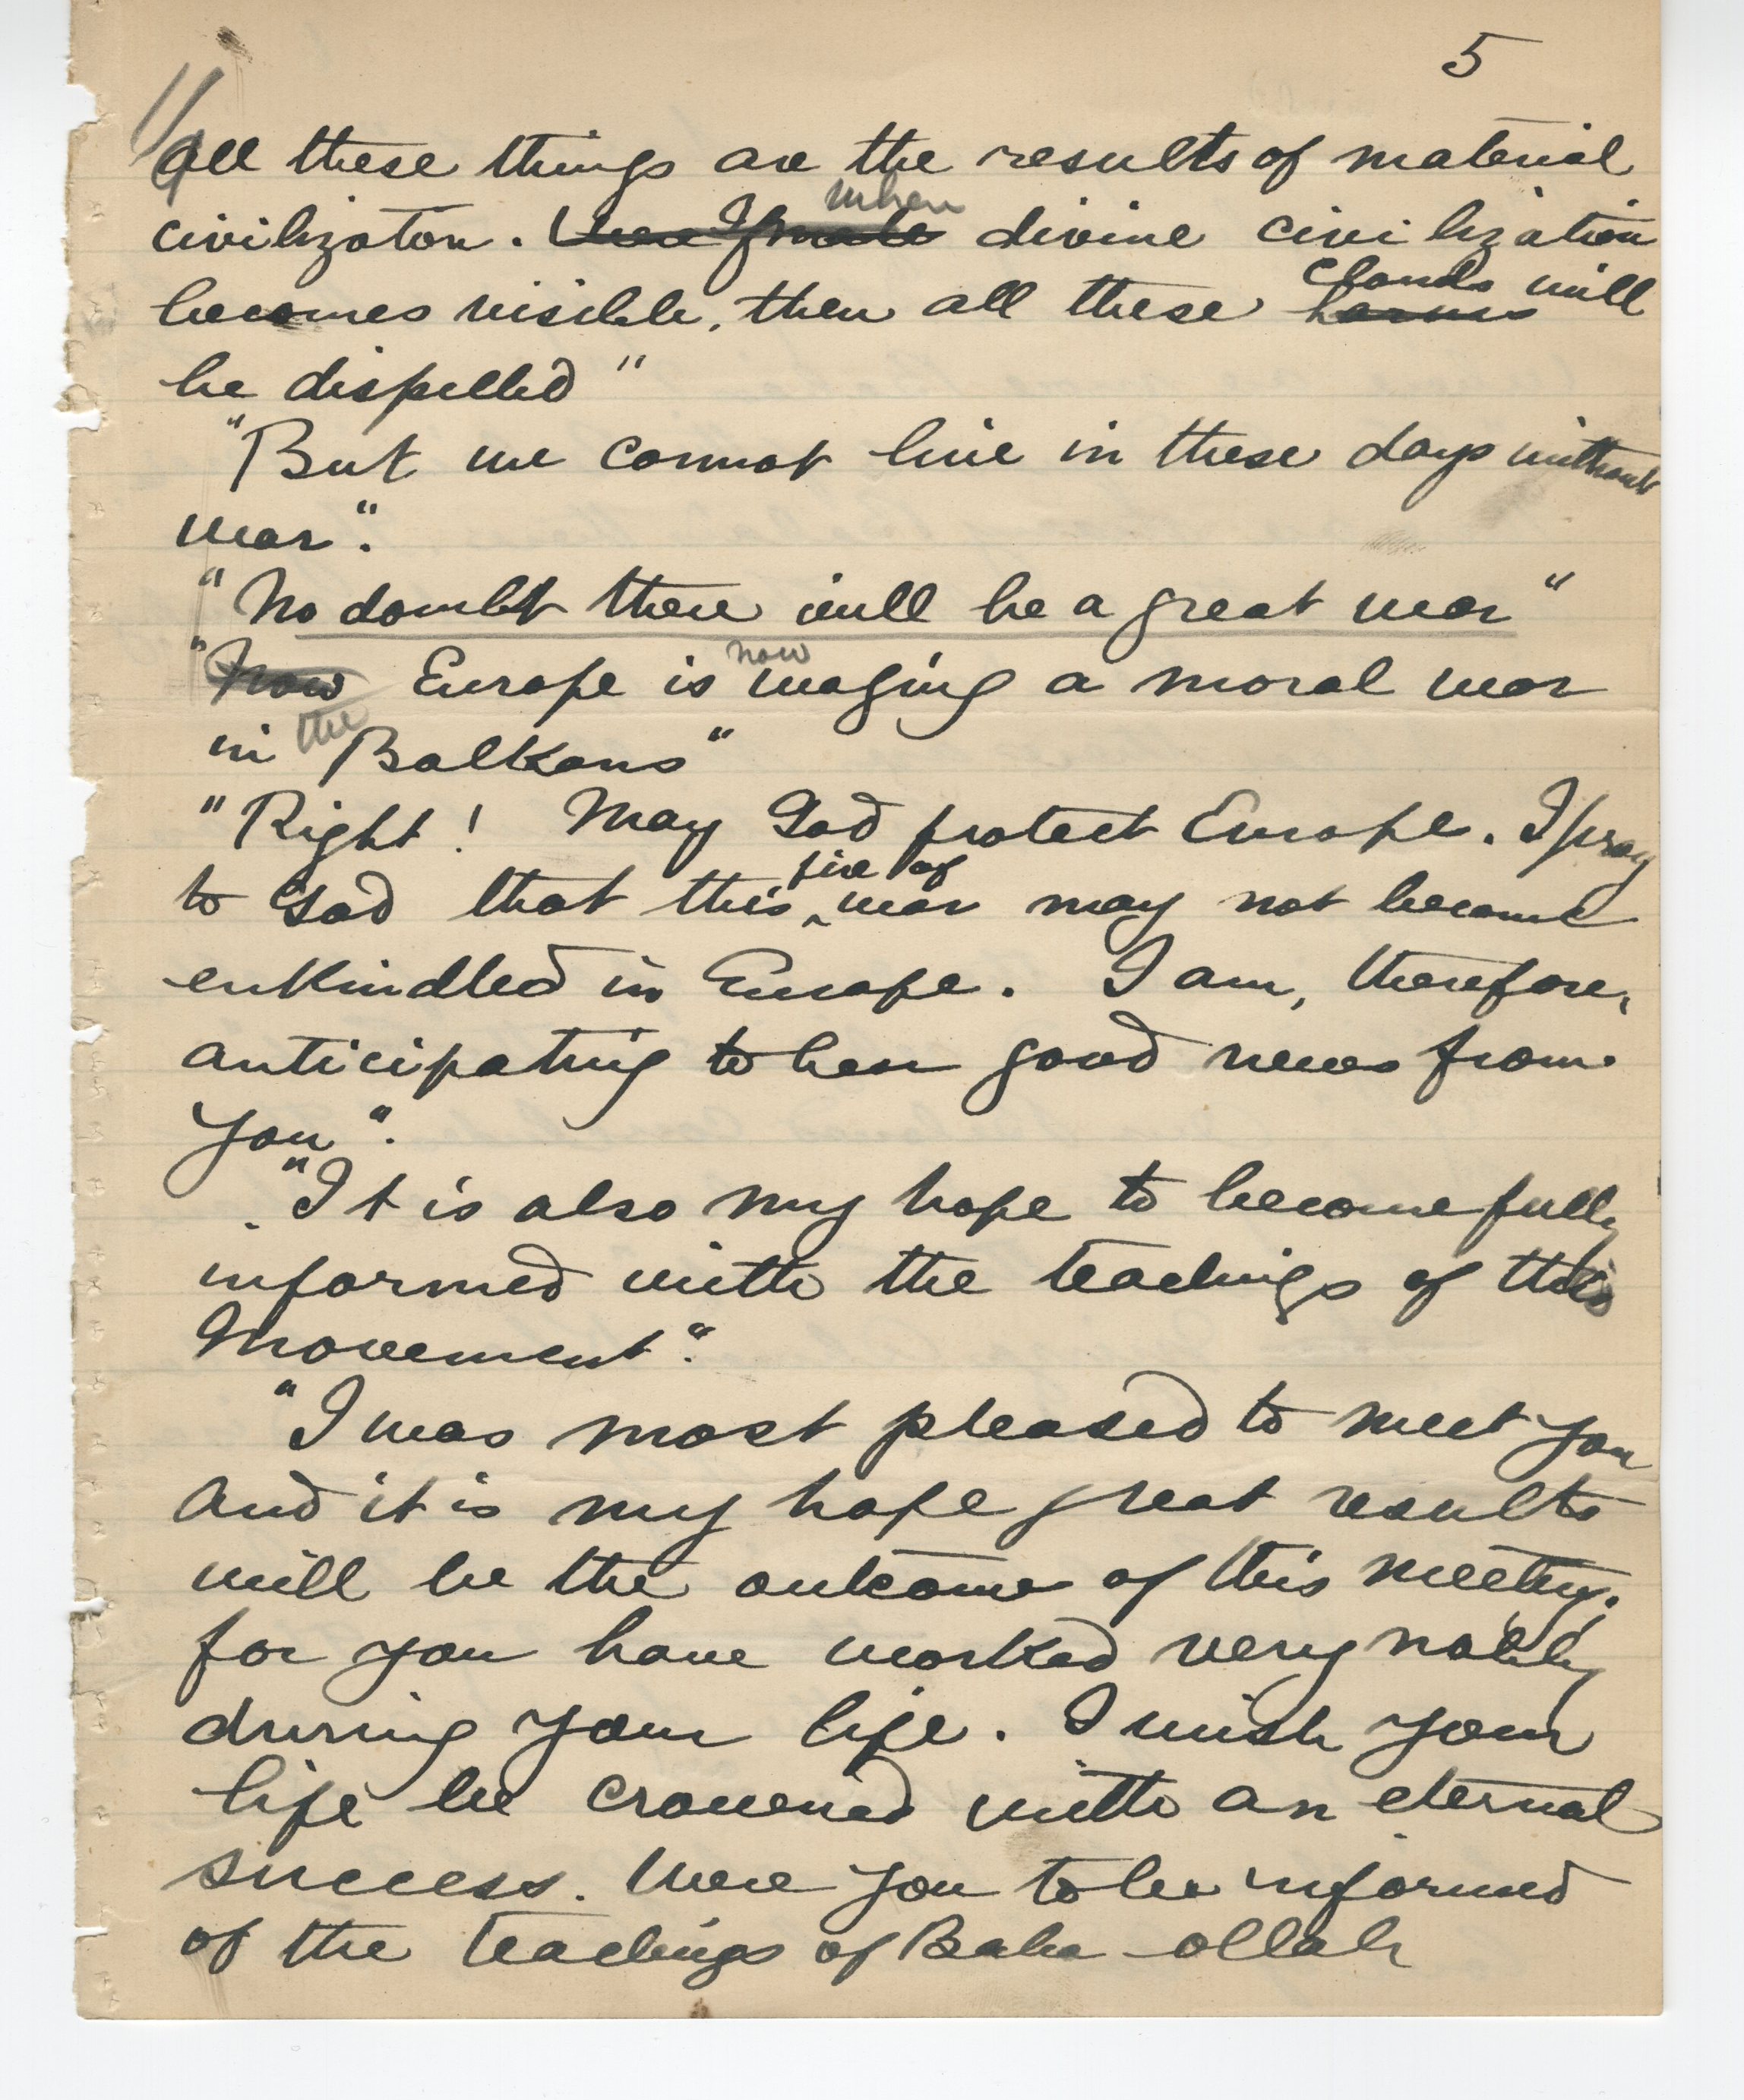 5
"All these things are the results of material
civilizaton. when divine civilization
becomes visible, then all these clouds will
be dispelled"
"But we cannot live in these days without
war".
"No doubt there will be a great war"
"Now Europe is now waging a moral war
in the Balkans"
"Right! May God protect Europe. I pray
to God that this fire of war may not become
enkindled in Europe. I am, therefore,
anticipating to hear good news from
you".
"It is also my hope to become fully
informed with the teachings of this
Movement".
"I was most pleased to meet you
and it is my hope great results
will be the outcome of this meeting,
for you have worked very nobly
during your life. I wish your
life be crowned with an eternal
success. Were you to be informed
of the teachings of Baha-ollah